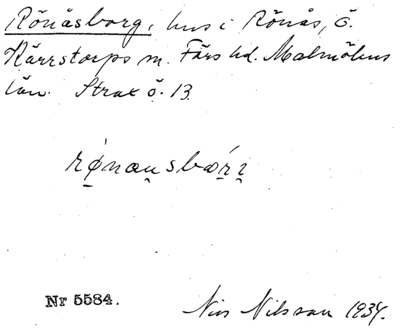 Rönåsborg, hus i Rönås, Ö.
Kärrstorps sn. Färs hd. Malmöhus
län. Strax ö. 13
Nr 5584.
Nils Nilsson 1934.